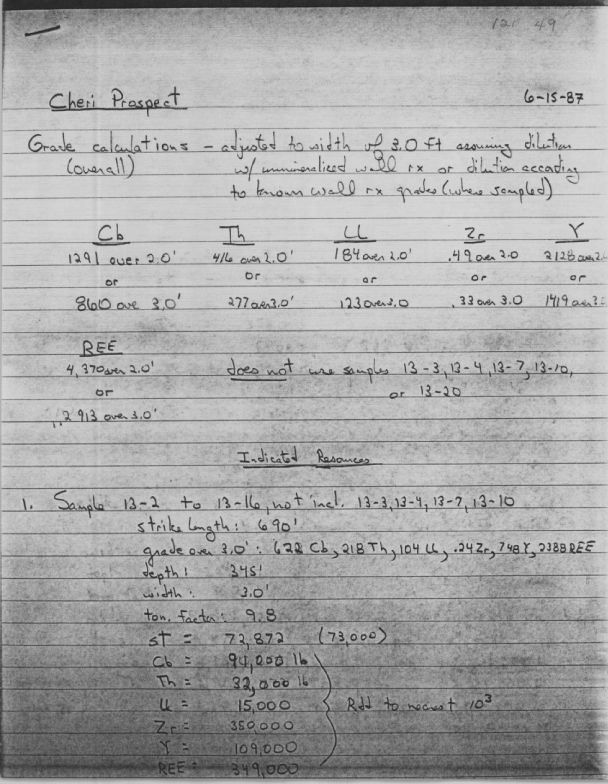 121 49
Cheri Prospect 6-15-87
Grade calculations - adjusted to width of 3.0 ft assuming dilution
(overall) w/ unmineralized wall rx or dilution according
to known wall rx grades (where sampled)
Cb Th U Zr Y
1291 over 2.0' 416 over 2.0' 184 over 2.0' .49 over 2.0 2128 over 2.0
or or or or or
860 ove 3.0' 277 over 3.0' 123 over 3.0 .33 over 3.0 1419 over 3.0
REE
4,370 over 2.0' does not use samples 13-3, 13-4, 13-7, 13-10,
or or 13-20
2 913 over 3.0'
Indicated Resources
1. Sample 13-2 to 13-16, not incl. 13-3, 13-4, 13-7, 13-10
strike length: 690'
grade over 3.0': 622 Cb, 218 Th, 104 U, .24 Zr, 748 Y, 2388 REE
depth: 345'
width: 3.0'
ton. factor: 9.8
st = 72,872 (73,000)
Cb = 94,000 lb
Th = 32,000 lb
U = 15,000 Rdd to nearest 10³
Zr = 350,000
Y = 109,000
REE = 349,000